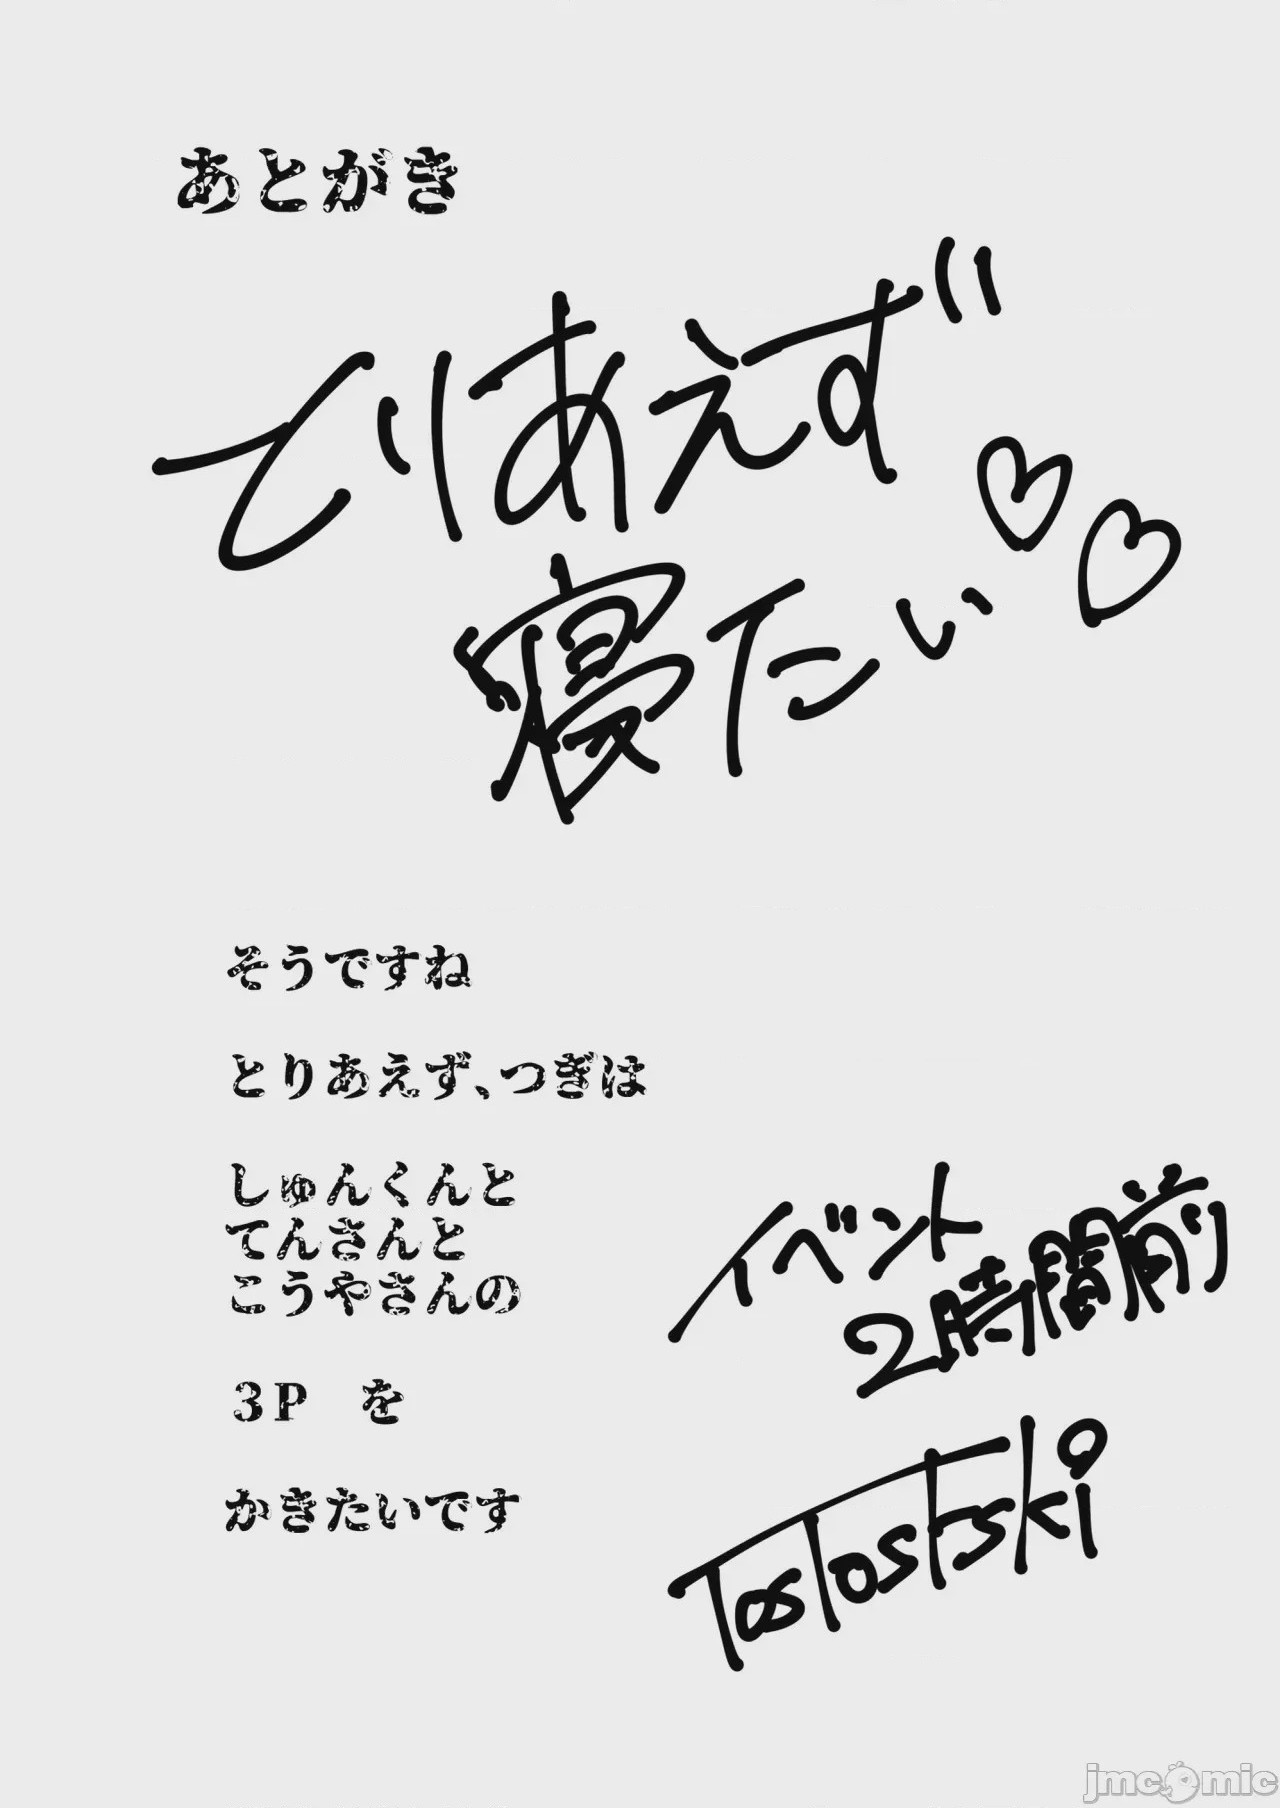 あとがき
とりあえず
寝たい♡♡
そうですね
とりあえず、つぎは
しゅんくんと
てんさんと
こうやさんの
3P を
かきたいです
イベント
2時間前
TosTostski
jmcomic